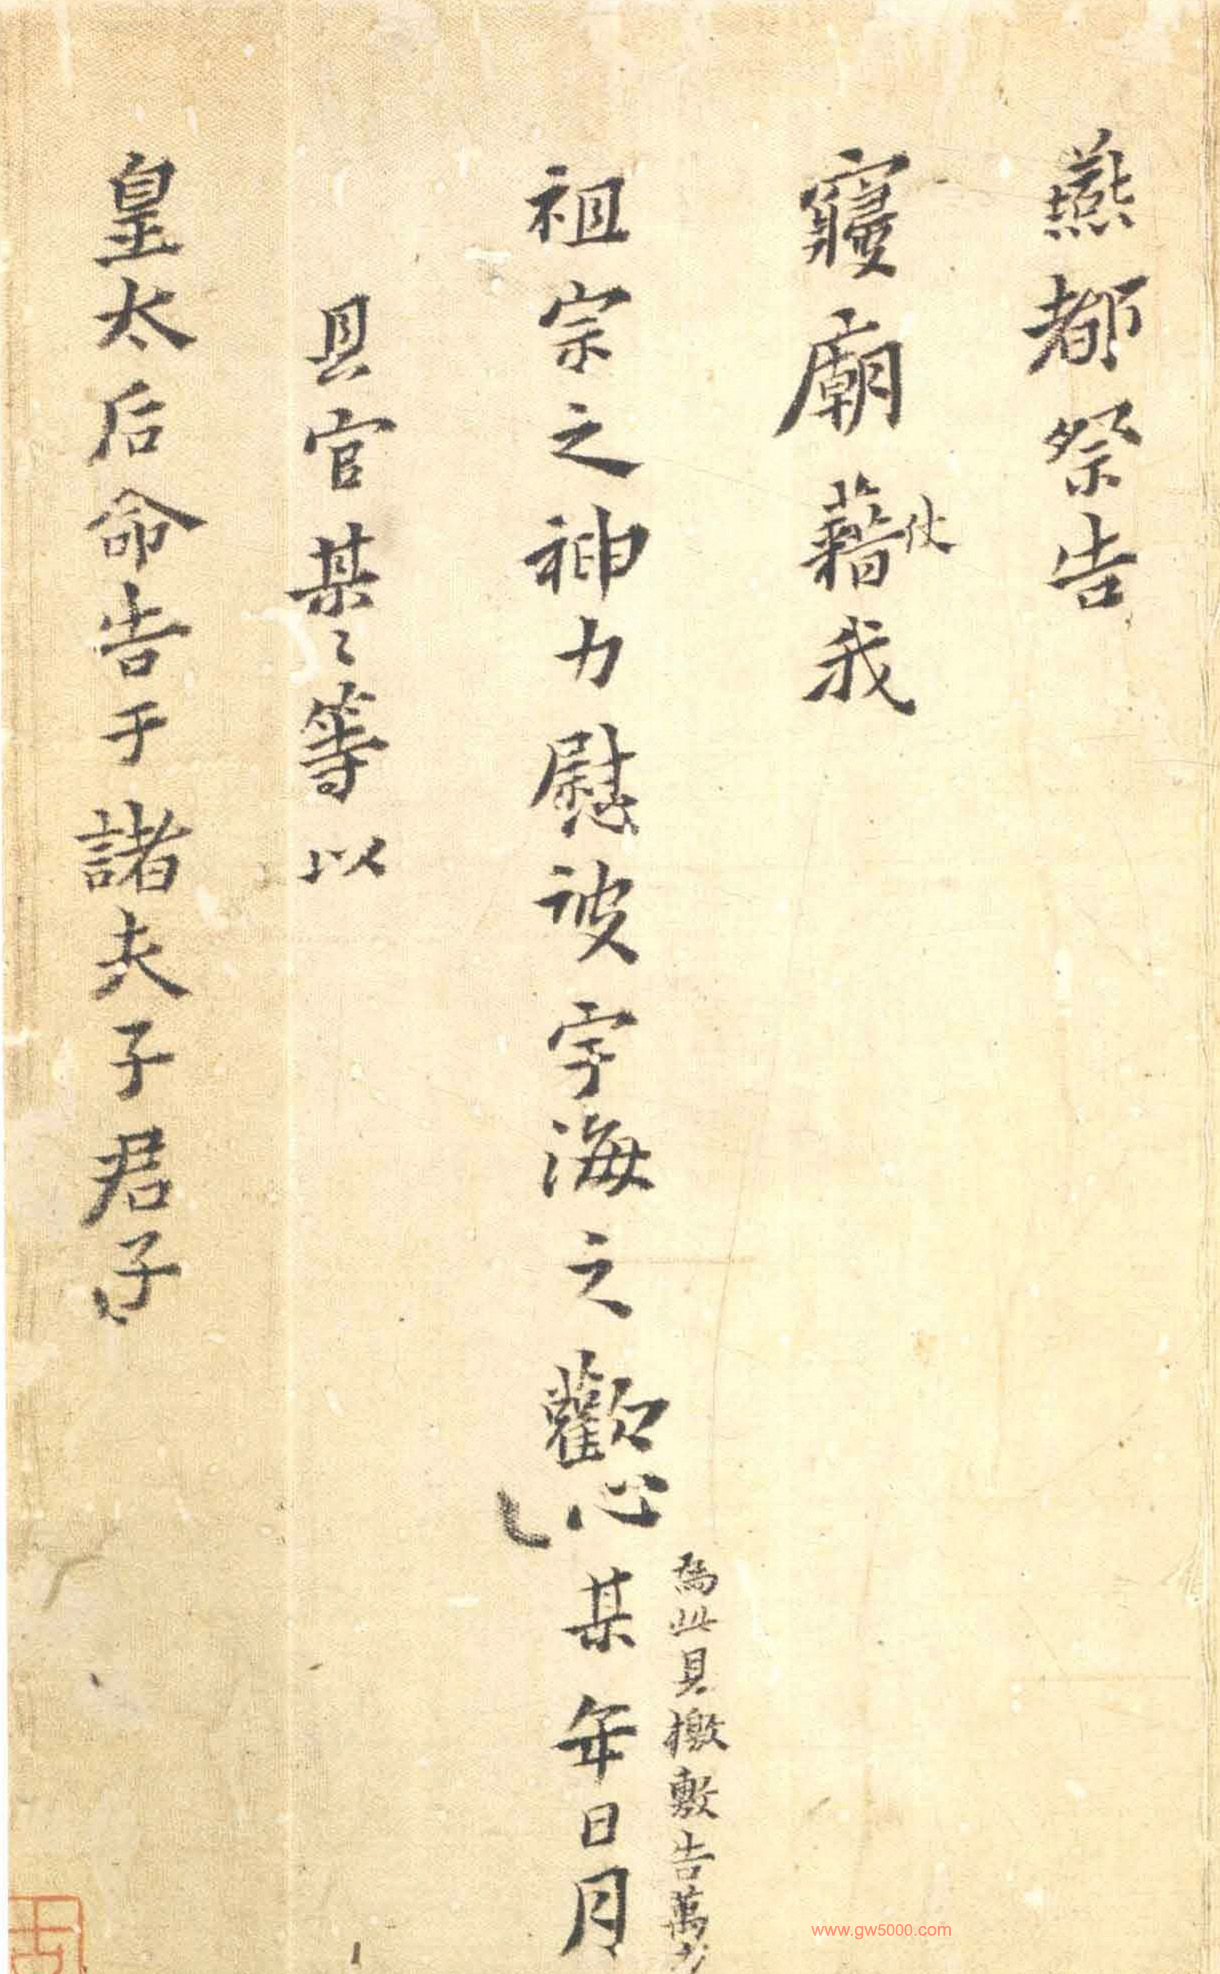 燕都祭告
寢廟藉我
使
祖宗之神力慰被宇海之歡心某年日月
為此具檄敷告萬方
具官某〻等以
皇太后命告于諸夫子君子
www.gw5000.com